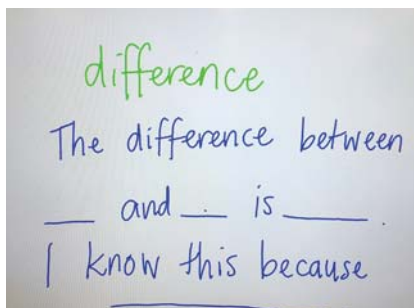 difference
The difference between
___ and ___ is ___.
I know this because
___